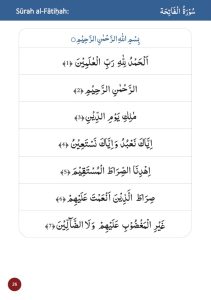 Sūrah al-Fātiḥah:
سُوْرَةُ الْفَاتِحَة
بِسْمِ اللهِ الرَّحْمٰنِ الرَّحِيْمِ
اَلْحَمْدُ لِلّٰهِ رَبِّ الْعٰلَمِيْنَ ﴿1﴾
الرَّحْمٰنِ الرَّحِيْمِ ﴿2﴾
مٰلِكِ يَوْمِ الدِّيْنِ ﴿3﴾
اِيَّاكَ نَعْبُدُ وَاِيَّاكَ نَسْتَعِيْنُ ﴿4﴾
اِهْدِنَا الصِّرَاطَ الْمُسْتَقِيْمَ ﴿5﴾
صِرَاطَ الَّذِيْنَ اَنْعَمْتَ عَلَيْهِمْ ﴿6﴾
غَيْرِ الْمَغْضُوْبِ عَلَيْهِمْ وَلَا الضَّآلِّيْنَ ﴿7﴾
26